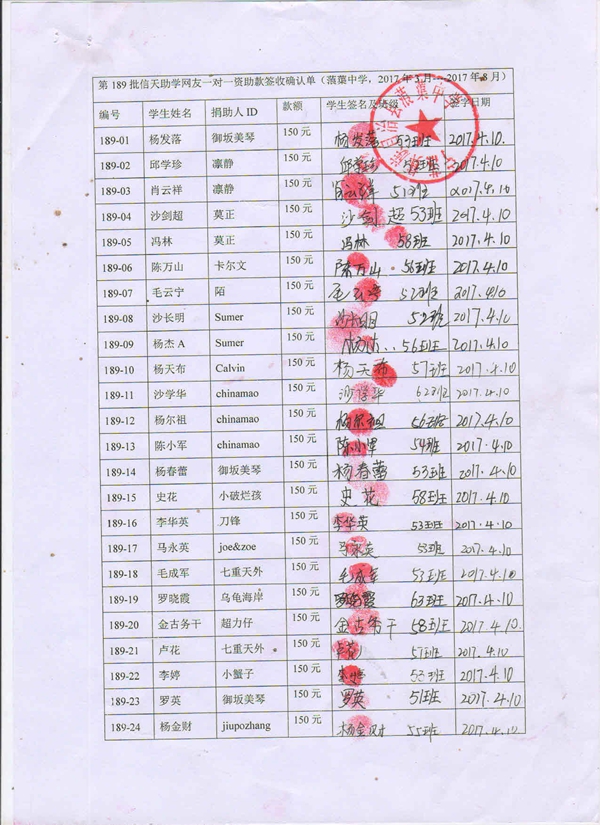 第 189 批信天助学网友一对一资助款签收确认单（蒗蕖中学，2017 年 3 月—2017 年 8 月）
编号 学生姓名 捐助人 ID 款额 学生签名及班级 签字日期
189-01 杨发落 御坂美琴 150 元 杨发落 53班 2017.4.10.
189-02 邱学珍 凛静 150 元 邱学珍 2017.4.10
189-03 肖云祥 凛静 150 元 肖云祥 51班 2017.4.10
189-04 沙剑超 莫正 150 元 沙剑超 53班 2017.4.10
189-05 冯林 莫正 150 元 冯林 58班 2017.4.10
189-06 陈万山 卡尔文 150 元 陈万山 56班 2017.4.10
189-07 毛云宁 陌 150 元 毛云宁 52班 2017.4.10
189-08 沙长明 Sumer 150 元 52班 2017.4.10
189-09 杨杰 A Sumer 150 元 56班 2017.4.10
189-10 杨天布 Calvin 150 元 杨天布 57班 2017.4.10
189-11 沙学华 chinamao 150 元 沙学华 62班 2017.4.10
189-12 杨尔祖 chinamao 150 元 杨尔祖 56班 2017.4.10
189-13 陈小军 chinamao 150 元 陈小军 54班 2017.4.10
189-14 杨春蕾 御坂美琴 150 元 杨春蕾 53班 2017.4.10
189-15 史花 小破烂孩 150 元 史花 58班 2017.4.10
189-16 李华英 刀锋 150 元 李华英 53班 2017.4.10
189-17 马永英 joe&zoe 150 元 马永英 53班 2017.4.10
189-18 毛成军 七重天外 150 元 毛成军 53班 2017.4.10
189-19 罗晓霞 乌龟海岸 150 元 罗晓霞 63班 2017.4.10
189-20 金古务干 超力仔 150 元 金古务干 58班 2017.4.10
189-21 卢花 七重天外 150 元 卢花 57班 2017.4.10
189-22 李婷 小蟹子 150 元 李婷 53班 2017.4.10
189-23 罗英 御坂美琴 150 元 罗英 51班 2017.4.10
189-24 杨金财 jiupozhang 150 元 杨金财 55班 2017.4.10